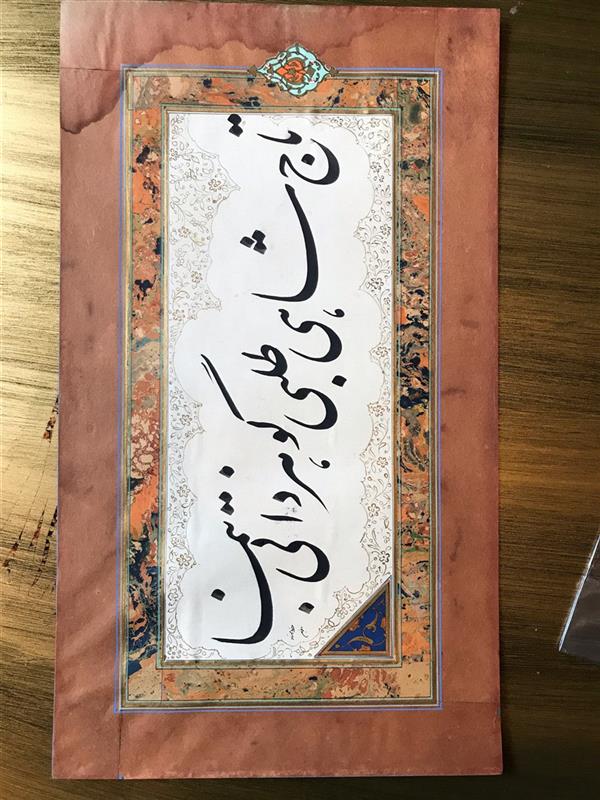 تاج شاهی طلبی گوهر ذاتی بنما